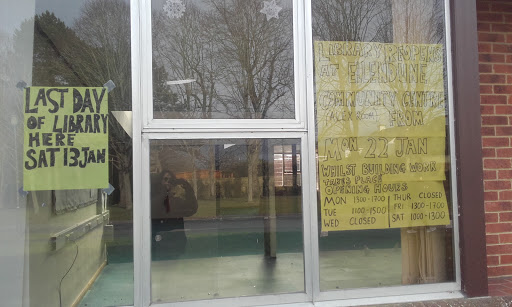 LAST DAY
OF LIBRARY
HERE
SAT 13 JAN
LIBRARY REOPENS
AT ELLENDUNE
COMMUNITY CENTRE
FROM
MON 22 JAN
WHILST BUILDING WORK
TAKES PLACE
OPENING HOURS
MON 1300-1700 THUR CLOSED
TUE -1500 FRI 1300-1700
WED CLOSED SAT 1000-1300